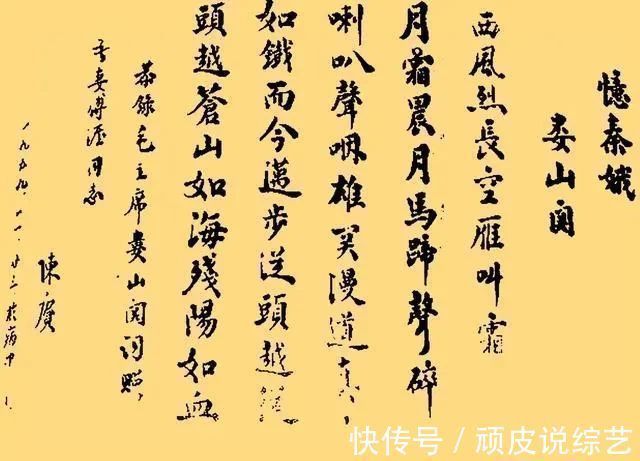 憶秦娥
娄山関
西風烈長空雁叫霜
月霜晨月馬蹄聲碎
喇叭聲咽雄関漫道真
如鐵而今邁步從頭越從
頭越蒼山如海殘陽如血
恭錄毛主席婁山関詞贈
吾妻傅涯同志
陳賡
一九五九.十一.廿三於病中
快传号 / 顽皮说综艺